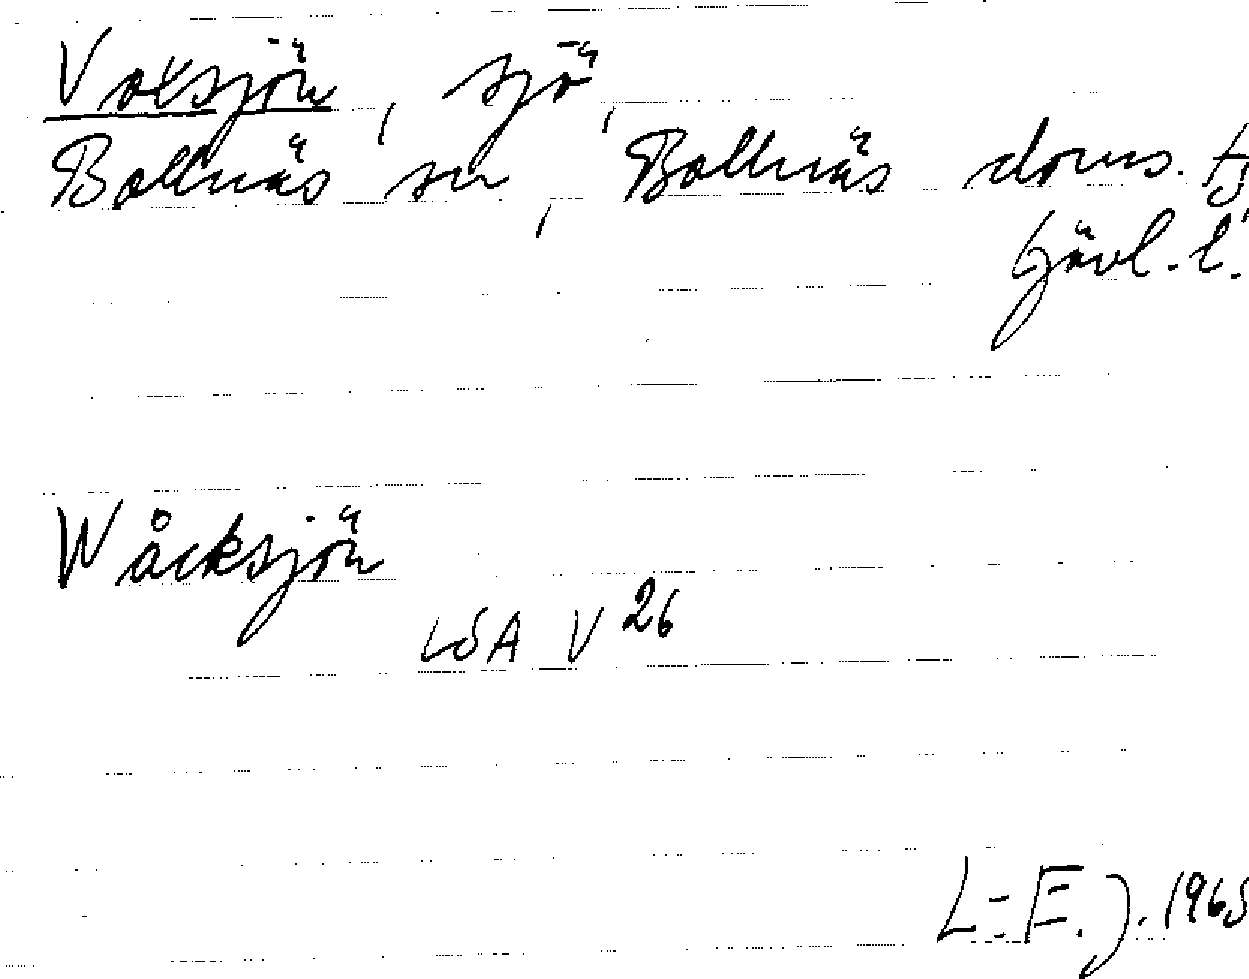 Voxsjön, sjö,
Bollnäs sn, Bollnäs doms.
Gävl. l.
Wåcksjön
LSA V 26
L-E. J. 1965